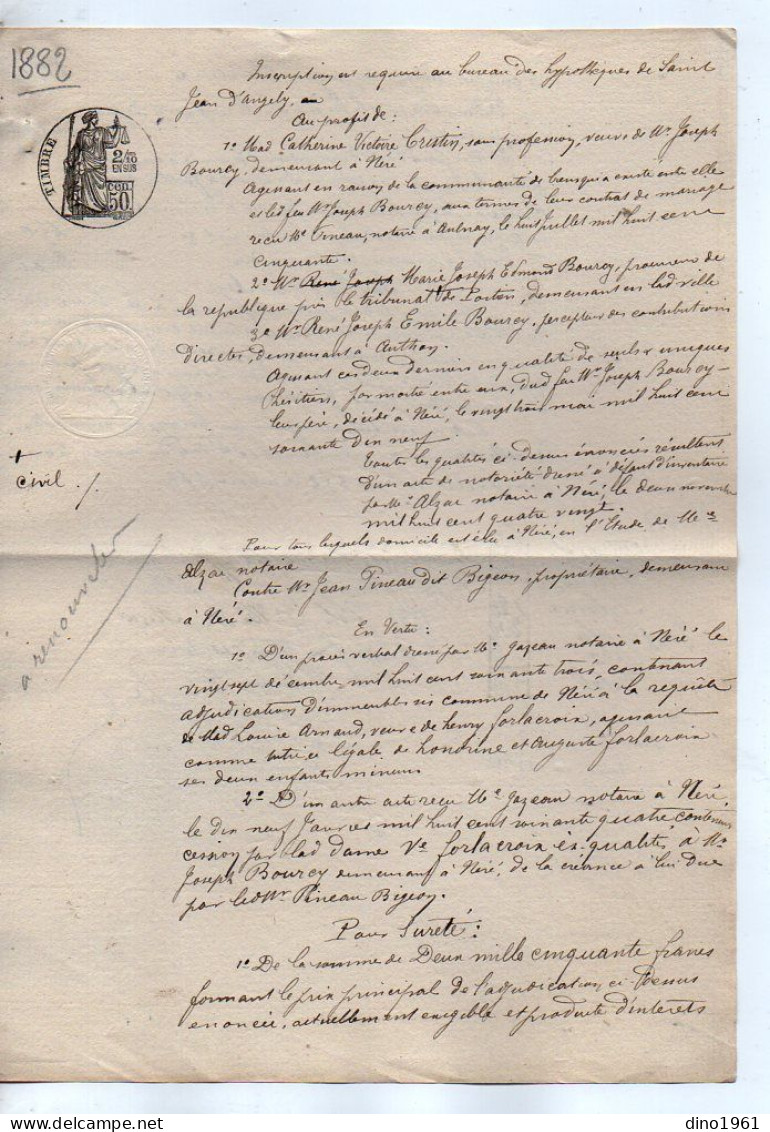 1882
TIMBRE
2/10
EN SUS
CEN.
50
Inscription est requise au bureau des hypothèques de Saint
Jean d'Angely, au
Au profit de :
1º Mad. Catherine Victoire Crestin, sans profession, veuve de Mr. Joseph
Bourcy, demeurant à Néré
Agissant en raison de la communauté de biens qui a existé entre elle
et led. feu Mr. Joseph Bourcy, aux termes de leur contrat de mariage
reçu Me Tineau, notaire à Aulnay, le huit Juillet mil huit cent
cinquante.
2º Mr René Joseph Marie Joseph Edmond Bourcy, procureur de
la république près le tribunal de, demeurant en lad. ville
3º Mr René Joseph Emile Bourcy, percepteur des contributions
directes, demeurant à Authon.
Agissant ces deux derniers en qualité de seuls & uniques
héritiers, pour moitié entre eux, dud. feu Mr. Joseph Bourcy
leur père, décédé à Néré, le vingt trois mai mil huit cent
soixante dix neuf.
Toutes les qualités ci-dessus énoncées résultent
d'un acte de notoriété dressé à défaut d'inventaire
par Me Alzac notaire à Néré, le deux novembre
mil huit cent quatre vingt.
+
civil. /.
Pour tous lesquels domicile est élu à Néré, en l'Etude de Me
Alzac notaire
Contre Mr Jean Pineau dit Bigeon, propriétaire, demeurant
à Néré.
a renouveler
En Vertu :
1º D'un procès verbal dressé par Me Gazeau notaire à Néré le
vingt sept décembre, mil huit cent soixante trois, contenant
adjudication d'immeubles sis commune de Néré à la requête
de Mad Louise Arnaud, veuve de henry forlacroix, agissant
comme tutrice légale de honorine et Auguste forlacroix
ses deux enfants mineurs
2º D'un autre acte reçu Me Gazeau notaire à Néré,
le dix neuf Janvier mil huit cent soixante quatre contenant
cession par lad dame Ve forlacroix ès-qualités, à Mr
Joseph Bourcy demeurant à Néré, de la créance à lui due
par led Mr Pineau Bigeon.
Pour Sureté :
1º De la somme de Deux mille cinquante francs
formant le prix principal de l'adjudication ci-dessus
énoncée, actuellement exigible et produite d'intérets
dino1961